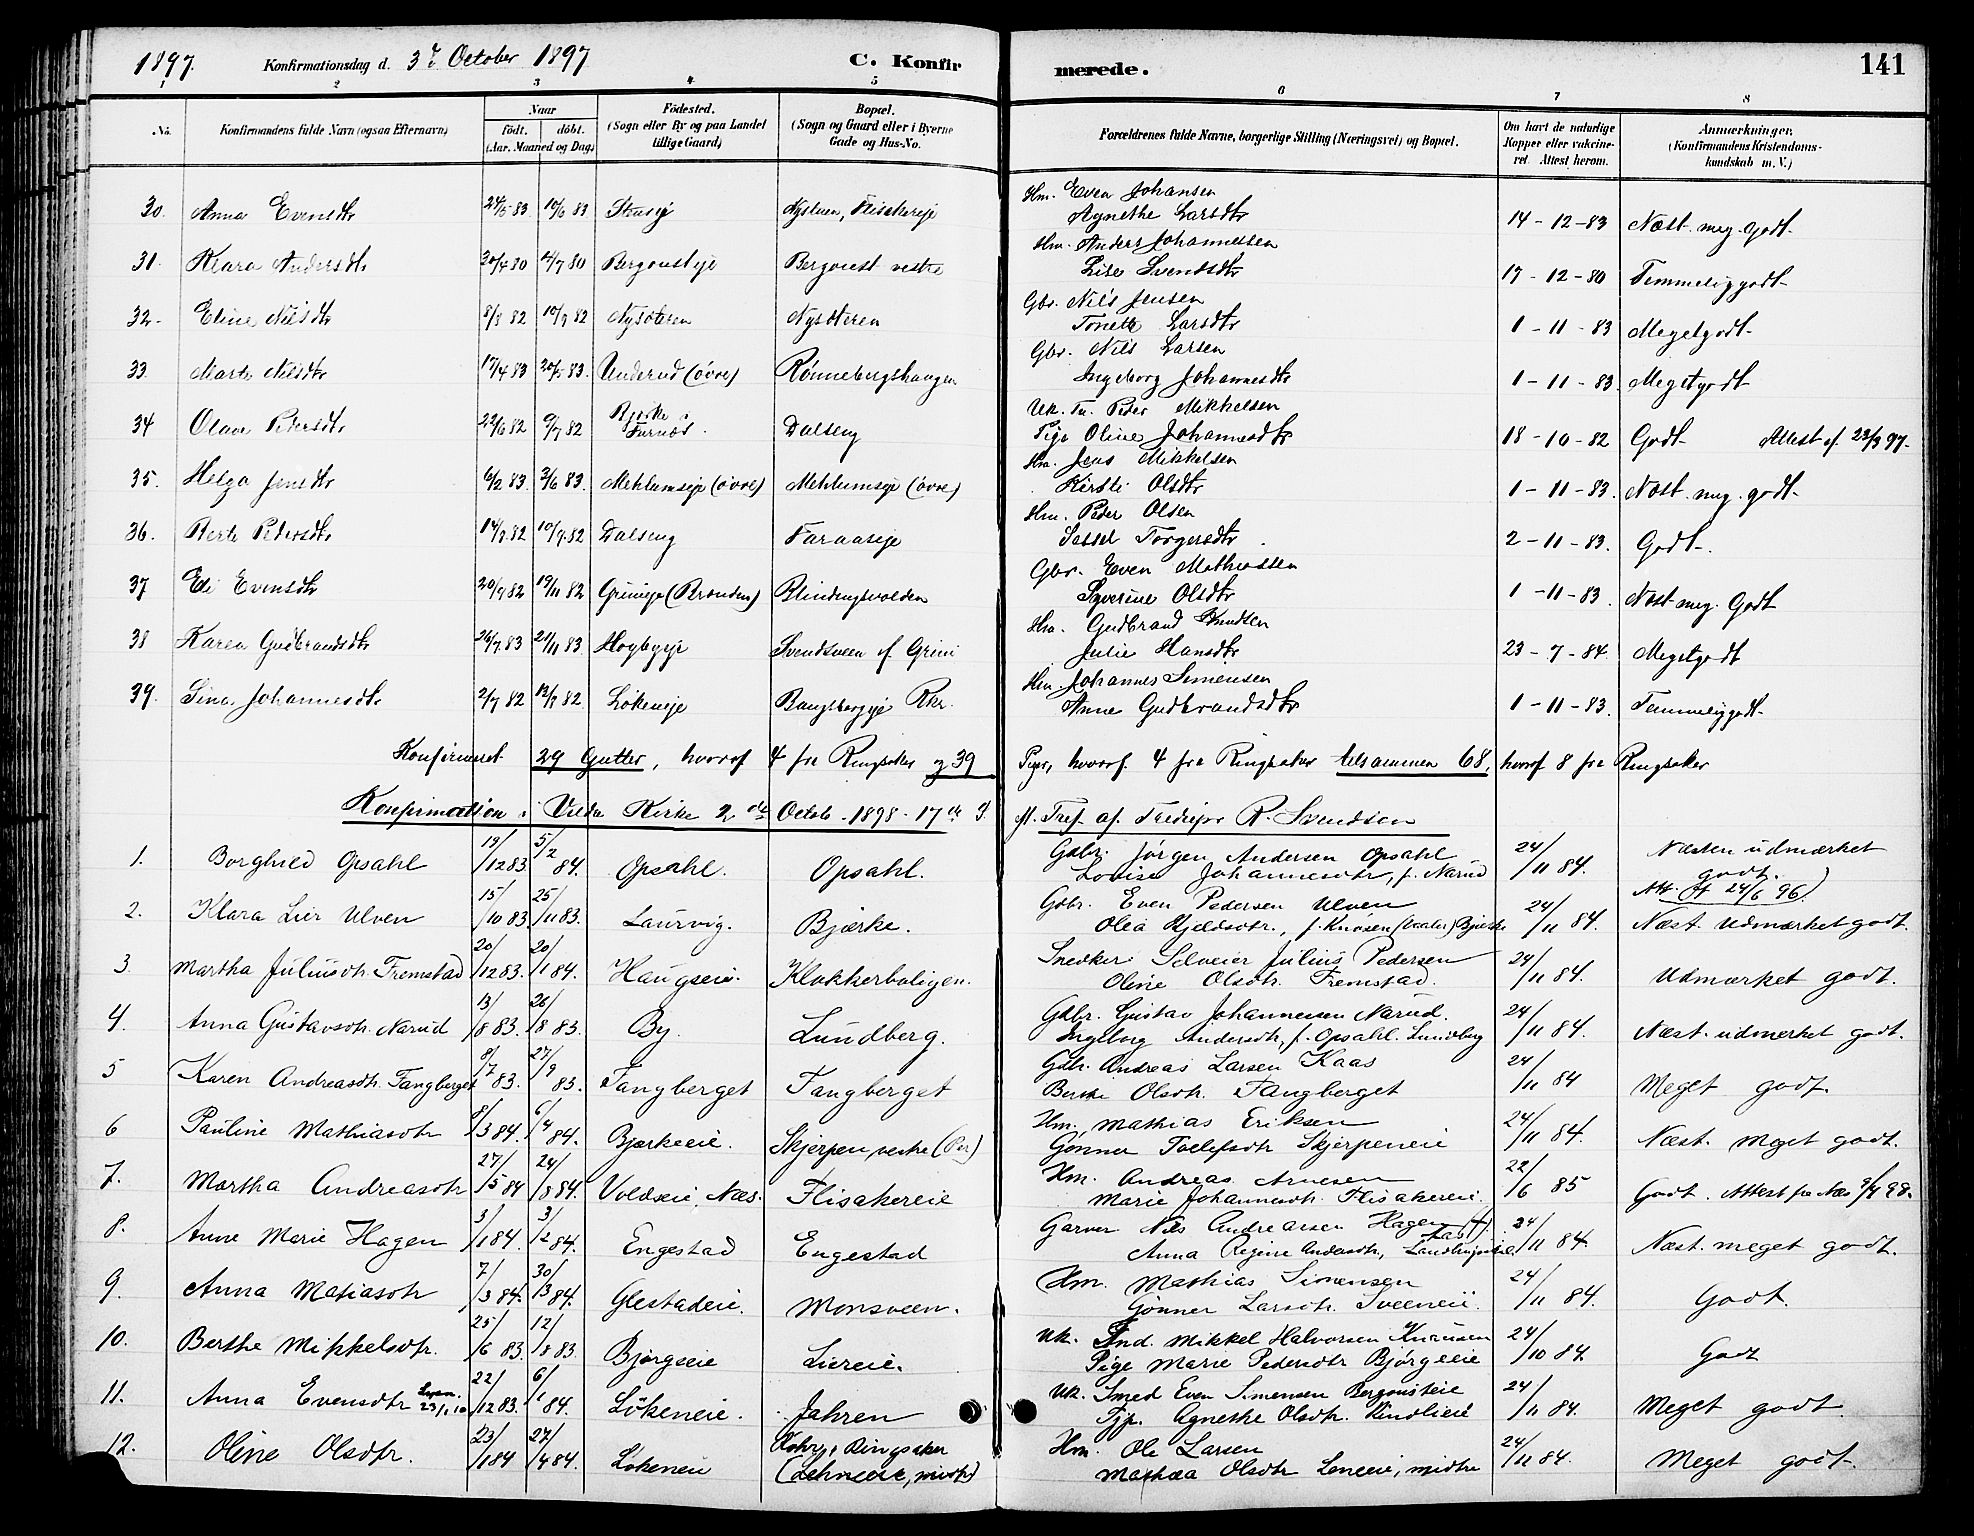 1897. Konfirmationsdag d. 3die October 1897 C. Konfirmerede. 141
1 2 3 4 5 6 7 8
No. Konfirmandens fulde Navn (ogsaa Efternavn) Naar födt. döbt. (Aar. Maaned og Dag) Födested. (Sogn eller By og paa Landet tillige Gaard) Bopæl. (Sogn og Gaard eller i Byerne Gade og Hus-No. Forældrenes fulde Navne, borgerlige Stilling (Næringsvei) og Bopæl. Om havt de naturlige Kopper eller vakcineret. Attest herom. Anmærkninger. (Konfirmandens Kristendomskundskab m. V.)
30. Anna Evensdtr 24/5 83 10/6 83 Nystuen, Flisakereje Hm. Even Johansen
Agnethe Larsdtr 14-12-83 Næst. meg. godt.
31. Klara Andersdtr 20/4 80 11/7 80 Bergousteje Bergoust vestre Hm. Anders Johannessen
Lise Svendsdtr 17-12-80 Temmelig godt
32. Eline Nilsdtr 8/8 82 10/9 82 Nysæteren Nysæteren Gbr. Nils Jensen
Tonette Larsdtr 1-11-83 Meget godt
33. Marte Nilsdtr 17/4 83 20/5 83. Underud (övre) Rønnebergshaugen Gbr. Nils Larsen
Ingeborg Johannesdtr 1-11-83. Meget godt
34 Olave Pedersdtr 22/6 82 9/7 82 Bjørke i Furnæs. Dalseng Uk. Tu. Peder Mikkelsen
Pige Oline Johannesdtr 18-10-82 Godt Attest af 23/3 97.
35. Helga Jensdtr 6/2 83. 3/6 83. Mehlumseje (övre) Mehlumseje (övre) Hm. Jens Mikkelsen
Kirsti Olsdtr 1-11-83. Næst. meg. godt
36. Berte Pedersdtr 14/8 82 10/9 82 Dalseng Faraaseje Hm. Peder Olsen
Sessel Torgersdtr 2-11-83. Godt
37 Eli Evensdtr 20/9 82 19/11 82 Grimeje (Branden) Blindingsvolden Gbr. Even Mathiassen
Syverine Olsdtr 1-11-83. Næst meg. Godt
38 Karen Gudbrandsdtr 26/9 83 21/11 83 Hogbyeje Svendsveen af Grimi Hm. Gudbrand Knudsen
Julie Hansdtr 23-7-84. Meget godt
39. Sina Johannesdtr 2/7 82 13/8 82 Lökeneje Bangsbergeje Rkr. Hm. Johannes Simensen
Anne Gudbrandsdtr 1-11-83. Temmelig godt
Konfirmeret 29 Gutter, hvoraf 4 fra Ringsaker og 39 Piger, hvoraf 4 fra Ringsaker tilsammen 68, hvoraf 8 fra Ringsaker
Konfirmation i Veldre Kirke 2den Octob. 1898 - 17de S. e. Tref. af R. Svendsen
1. Borghild Opsahl 19/12 83. 5/2 84. Opsahl. Opsahl. Gdbr. Jörgen Andersen Opsahl
Lovise Johannesdtr, f. Narud 24/11 84. Næsten udmærket godt.
2. Klara Lier Ulven 15/10 83 25/11 83. Laurvig. Bjærke. Gbr. Even Pedersen Ulven
Olea Kjeldsdtr., f. Knosen (Vaaler) Bjærke 24/11 84. Att. af 24/6 96) Næst. udmærket godt.
3. Martha Juliusdtr. Fremstad 20/12 83. 20/1 84. Haugseie. Klokkerboligen. Snedker Selveier Julius Pedersen
Oline Olsdtr. Fremstad. 24/11 84. Udmærket godt.
4. Anna Gustavsdtr. Narud 13/8 83. 26/8 83. By. Lundberg. Gdbr. Gustav Johannesen Narud.
Ingeborg Andersdtr, f. Opsahl. Lundberg 24/11 84. Næst. udmerket godt.
5 Karen Andreasdtr. Tangberget 8/7 83. 27/9 83. Tangberget Tangberget Gdbr. Andreas Larsen Kaas
Berthe Olsdtr. Tangberget 24/11 84 Meget godt.
6 Pauline Mathiasdtr 8/3 84. 6/4 84. Bjærkeeie. Skjerpen, vestre Hm. Mathias Eriksen
Gonner Toelefsdtr Skjerpeneie 24/11 84. Næst. meget godt.
7. Martha Andreasdtr 27/5 84 24/8 84. Voldseie, Næs. Flisakereie Hm. Andreas Arnesen
Marie Johannesdtr. Flisakereie. 22/6 85 Godt. Attest fra Næs 9/9 98.
8. Anne Marie Hagen 3/1 84. 3/2 84. Engestad Engestad Garver Nils Andreassen Hagen (+)
Anna Regine Andersdtr, 24/11 84. Næst. meget godt.
9. Anna Matiasdtr 7/3 84. 30/3 84. Glestadeie. Monsveen. Hm. Mathias Simensen
Gönner Larsdtr. Sveeneie 24/11 84. Godt.
10. Berthe Mikkelsdtr. 25/6 83. 12/8 83. Bjørgeeie Liereie. Uk. Ind. Mikkel Halvorsen Knausen
Pige Marie Pedersdtr Bjørgeeie 24/10 84. Godt
11. Anna Evensdtr 22/12 83. 6/1 84. Lökeneie. Jahren Uk. Smed Even Simensen Bergousteie
Tjp. Agnethe Olsdtr. Kindlieie 24/11 84. Meget godt.
12. Oline Olsdtr. 23/1 84 27/4 84. Lokeneie Ringsaker (Lehneeie, midtre) Hm. Ole Larsen
Mathea Olsdtr Leneeie, midtre 24/11 84. Meget godt.